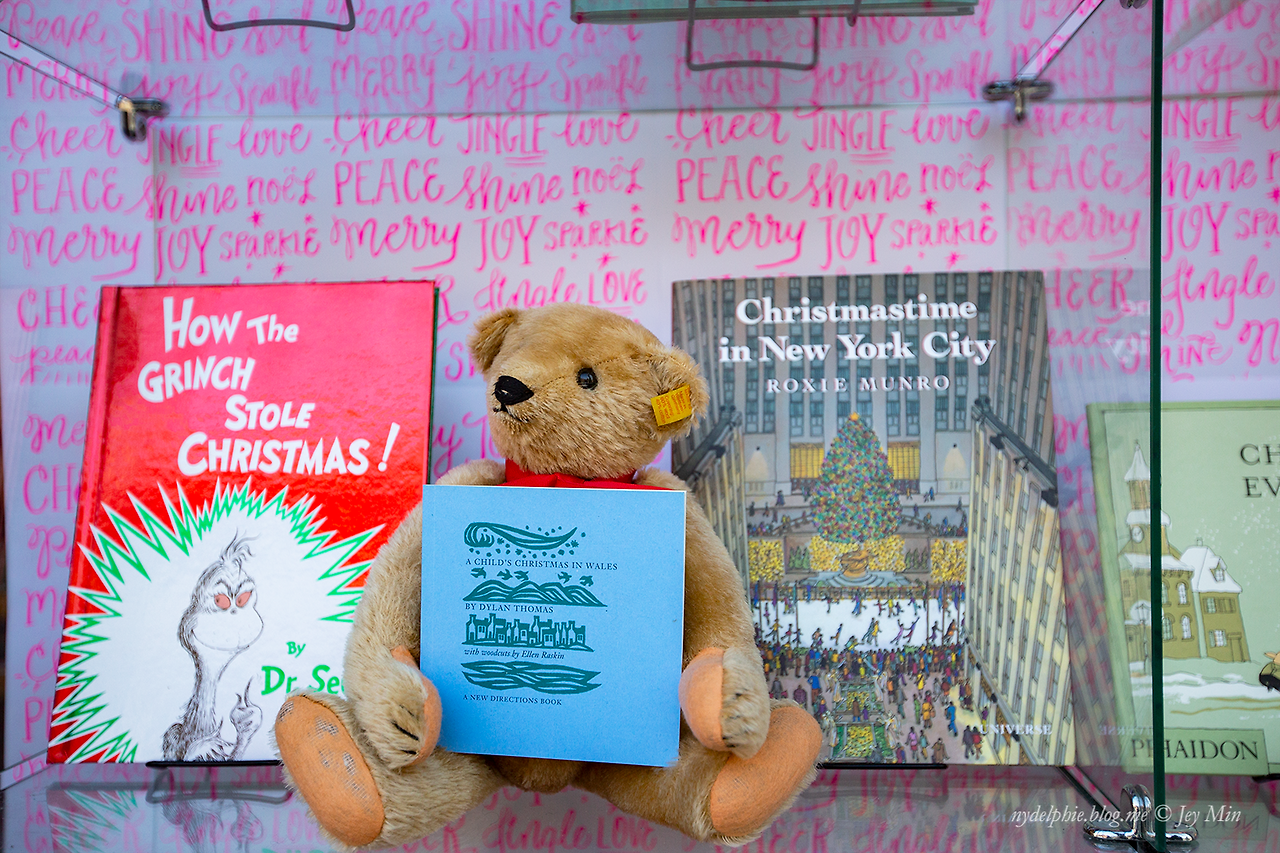 Peace SHINE
MERRY Joy Sparkle
Cheer JINGLE love Cheer JINGLE love Cheer JINGLE love
PEACE shine noël PEACE shine noël PEACE shine noël
merry JOY SPARKLE merry JOY SPARKLE merry JOY SPARKLE
Jingle LOVE
HOW THE
GRINCH
STOLE
CHRISTMAS!
By
Dr.
Christmastime
in New York City
ROXIE MUNRO
UNIVERSE
A CHILD'S CHRISTMAS IN WALES
BY DYLAN THOMAS
with woodcuts by Ellen Raskin
A NEW DIRECTIONS BOOK
CH
EV
PHAIDON
nydelphie.blog.me © Jey Min